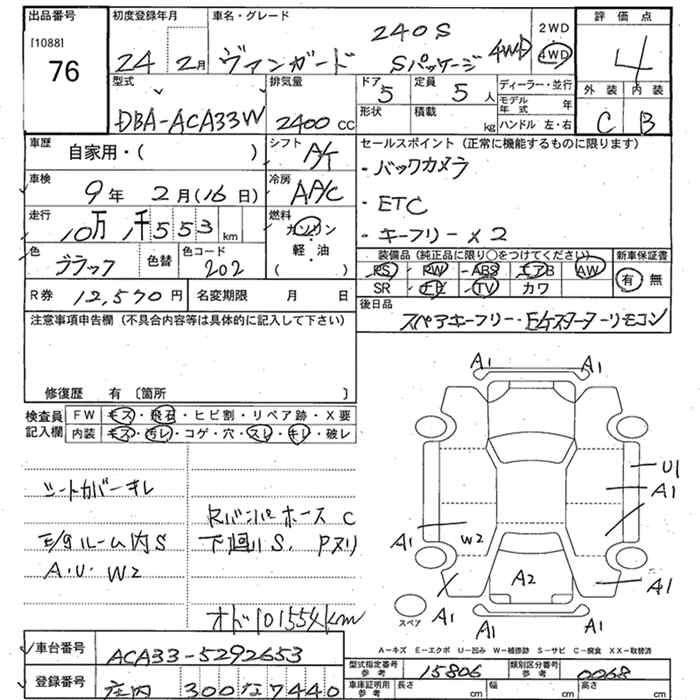 出品番号 初度登録年月 車名・グレード 2WD 評価点
[1088] 240S 4WD
76 24 2月 ヴァンガード Sパッケージ 4WD 4
型式 排気量 ドア 定員 ディーラー・並行 外装 内装
5 5人 モデル年式 年
DBA-ACA33W 2400cc 形状 積載 kg ハンドル 左・右 C B
車歴 自家用・( ) シフト A/T セールスポイント (正常に機能するものに限ります)
・バックカメラ
車検 9年 2月(16日) 冷房 AA/C
・ETC
走行 10万 1千 553 km 燃料 ガソリン・軽・油 ( )
・キーフリー×2
色 ブラック 色替 色コード 202
装備品 (純正品に限り○をつけてください) 新車保証書
PS PW ABS エアB AW 有・無
SR TV カワ
R券 12,570円 名変期限 月 日
後日品 スペアキーフリー・
注意事項申告欄 (不具合内容等は具体的に記入して下さい)
修復歴 有 〔箇所 〕
検査員記入欄 FW キズ・飛石・ヒビ割・リペア跡・X要
内装 キズ・汚レ・コゲ・穴・スレ・キレ・破レ
シートカバーキレ
Rバンパ ホース C
E/gルーム内S 下廻りS、Pヌリ
A・U・W2
オドロ101554km
A1 A1
U1
A1
A1 W2
A2
A1 A1
A1 A1
スペア
A－キズ E－エクボ U－凹み W－補修跡 S－サビ C－腐食 XX－取替済
車台番号 ACA33-5292653
型式指定番号 参考 15806 類別区分番号 参考 0068
登録番号 庄内 300 な 7440
車庫証明用 参考 長さ cm 幅 cm 高さ cm